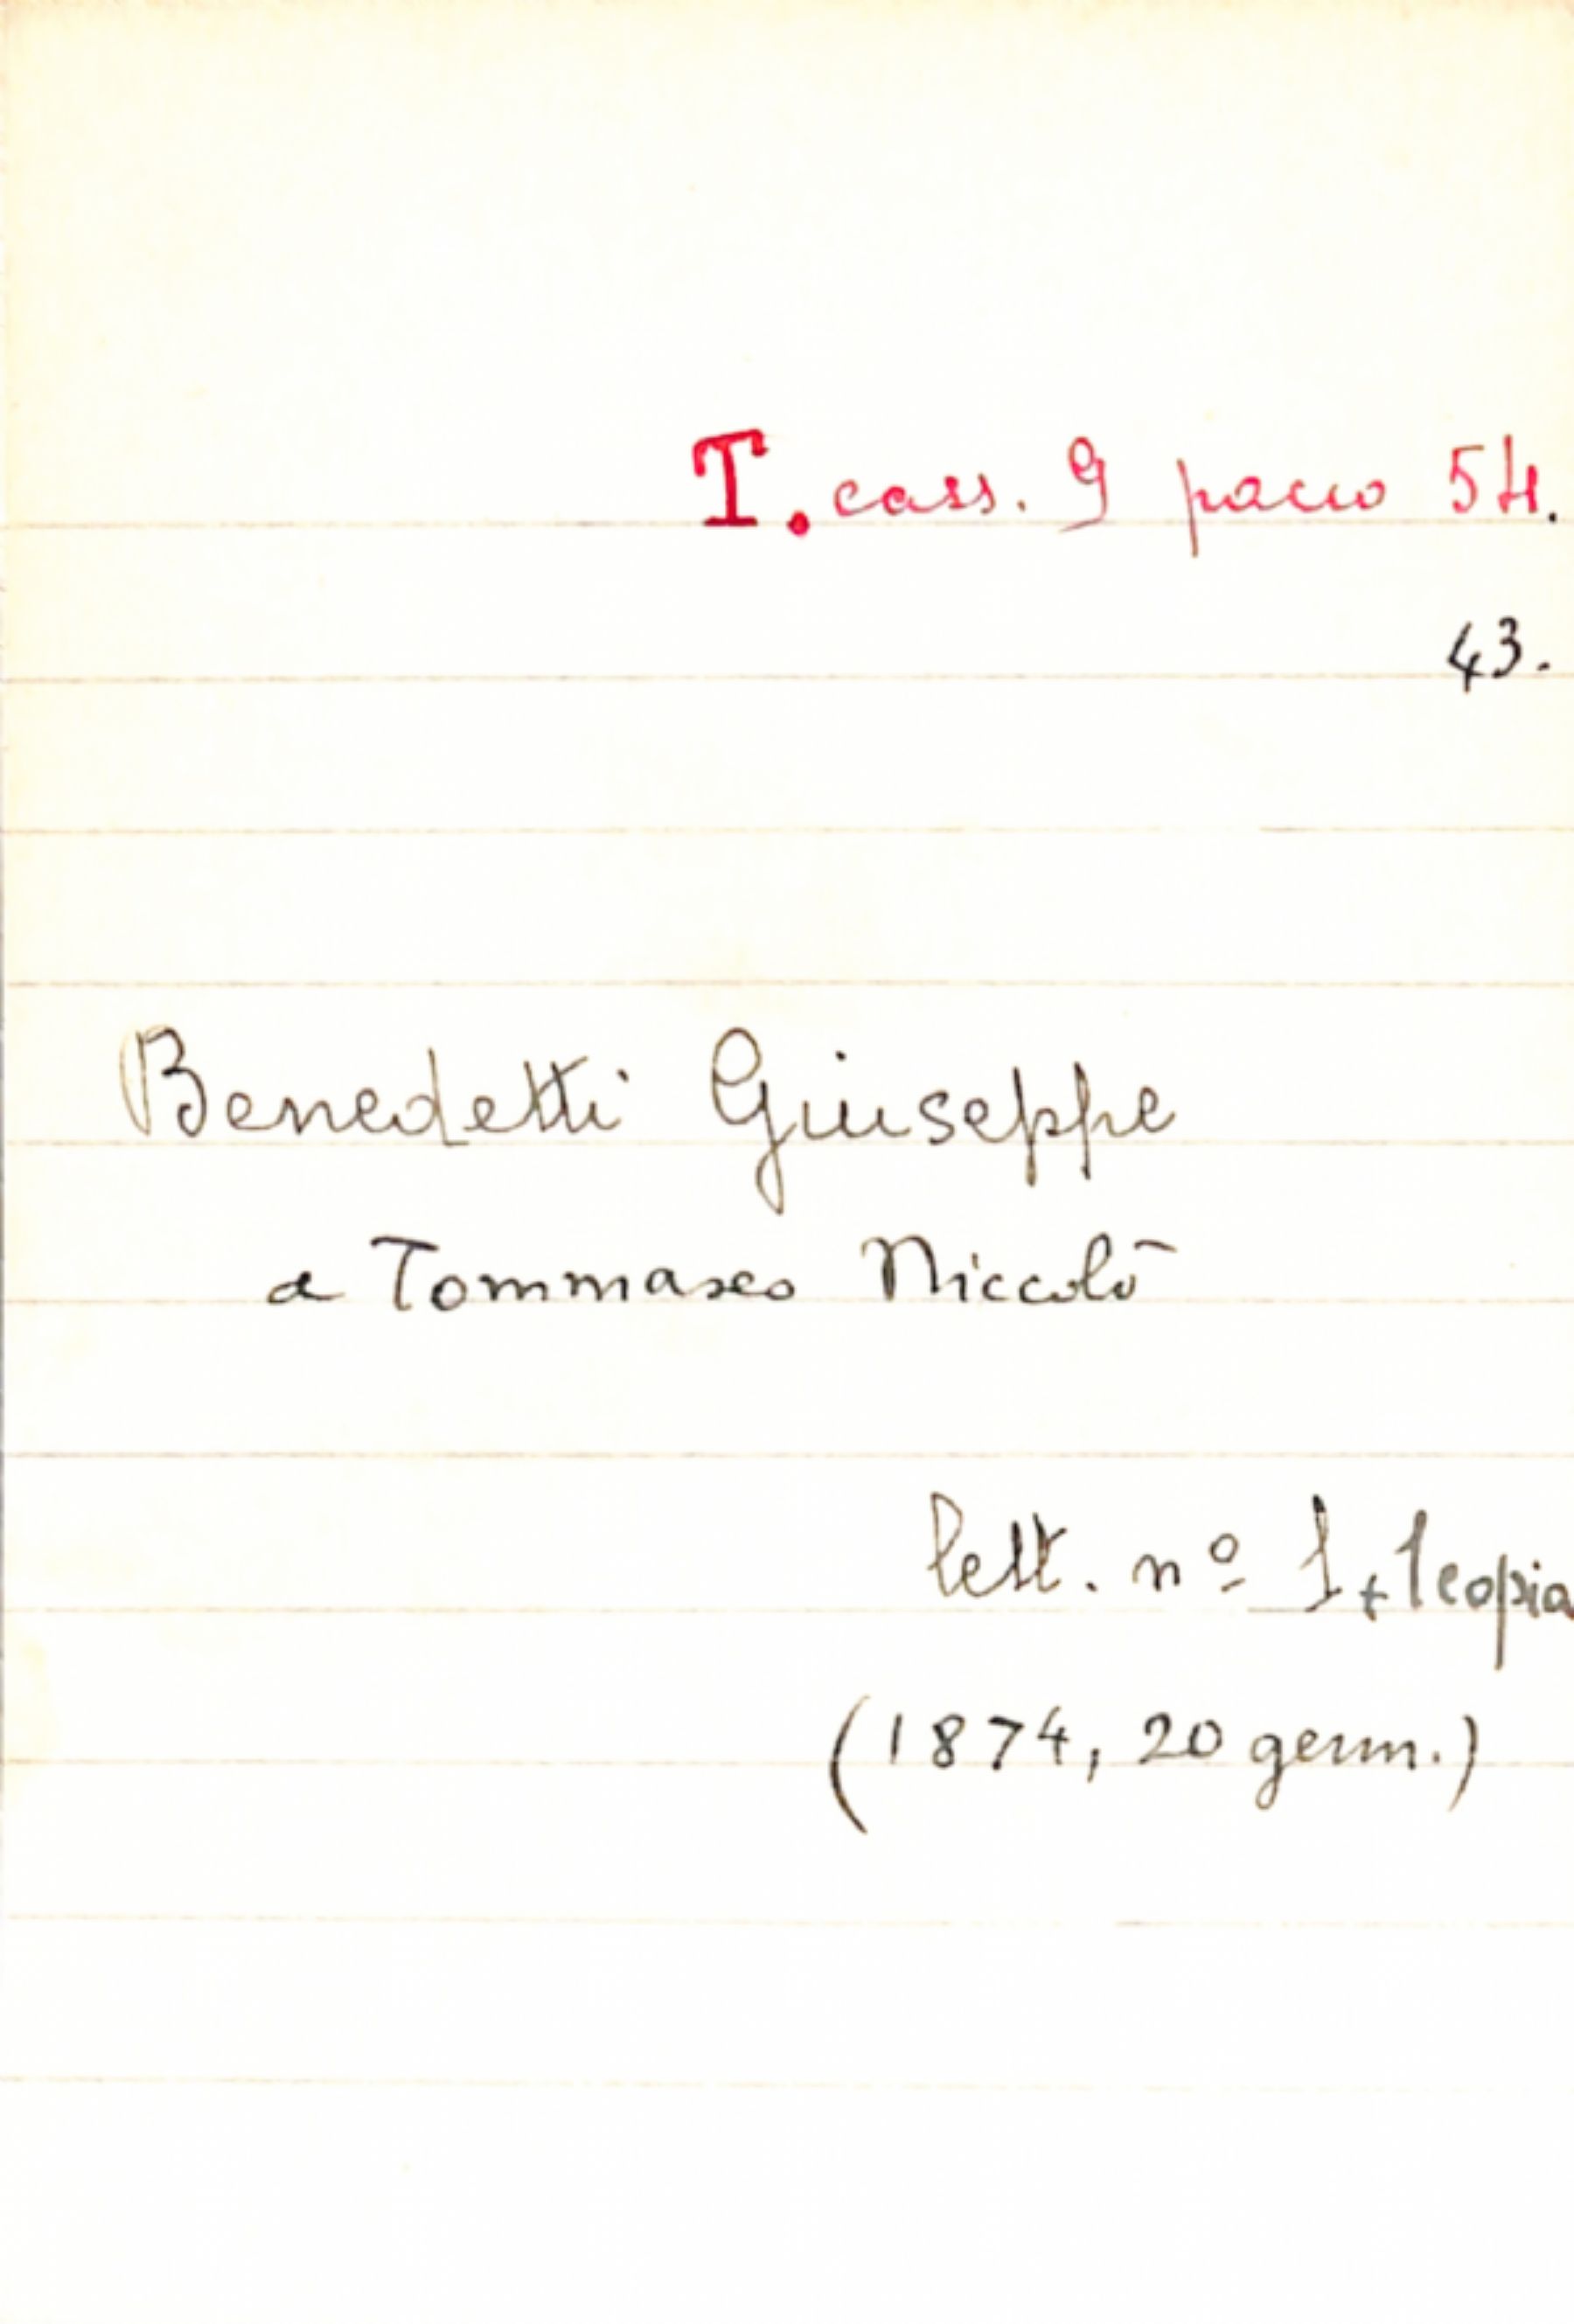 T. cass. 9 pacco 54.
43.
Benedetti Giuseppe
a Tommaseo Niccolò
lett. nº 1 + 1 copia
(1874, 20 genn.)